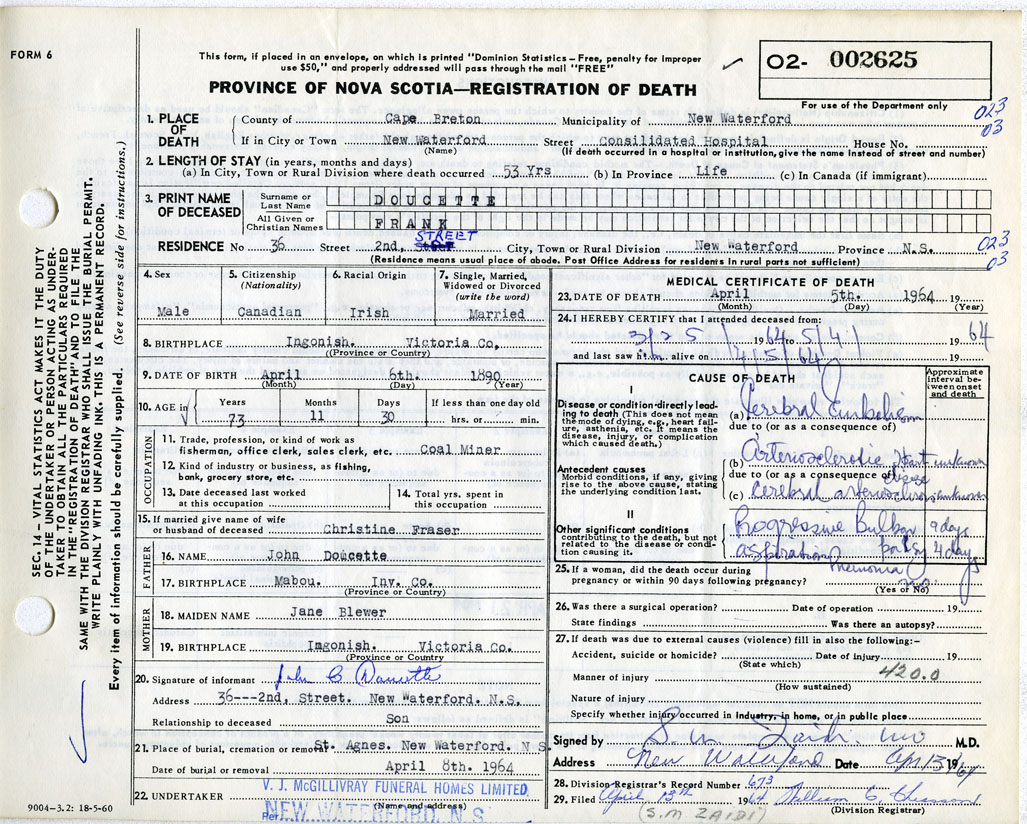 FORM 6
This form, if placed in an envelope, on which is printed "Dominion Statistics—Free, penalty for improper
use $50," and properly addressed will pass through the mail "FREE"
O2- 002625
PROVINCE OF NOVA SCOTIA—REGISTRATION OF DEATH
For use of the Department only
023
03
1. PLACE OF DEATH
County of Cape Breton Municipality of New Waterford
If in City or Town New Waterford Street Consilidated Hospital House No.
(Name) (If death occurred in a hospital or institution, give the name instead of street and number)
2. LENGTH OF STAY (in years, months and days)
(a) In City, Town or Rural Division where death occurred 53 Yrs (b) In Province Life (c) In Canada (if immigrant)
3. PRINT NAME OF DECEASED
Surname or Last Name DOUCETTE
All Given or Christian Names FRANK
STREET
RESIDENCE No 36 Street 2nd, City, Town or Rural Division New Waterford Province N.S.
(Residence means usual place of abode. Post Office Address for residents in rural parts not sufficient)
023
03
4. Sex
Male
5. Citizenship
(Nationality)
Canadian
6. Racial Origin
Irish
7. Single, Married,
Widowed or Divorced
(write the word)
Married
8. BIRTHPLACE Ingonish. Victoria Co.
((Province or Country)
9. DATE OF BIRTH April 6th. 1890
(Month) (Day) (Year)
10. AGE in Years Months Days If less than one day old
73 11 30 hrs. or min.
OCCUPATION
11. Trade, profession, or kind of work as
fisherman, office clerk, sales clerk, etc. Coal Miner
12. Kind of industry or business, as fishing,
bank, grocery store, etc.
13. Date deceased last worked
at this occupation
14. Total yrs. spent in
this occupation
15. If married give name of wife
or husband of deceased Christine Fraser
FATHER
16. NAME John Doucette
17. BIRTHPLACE Mabou. Inv. Co.
(Province or Country)
MOTHER
18. MAIDEN NAME Jane Blewer
19. BIRTHPLACE Imgonish. Victoria Co.
(Province or Country
20. Signature of informant John C Doucette
Address 36---2nd, Street. New Waterford. N.S.
Relationship to deceased Son
21. Place of burial, cremation or removal St. Agnes. New Waterford. N S.
Date of burial or removal April 8th. 1964
22. UNDERTAKER V. J. McGILLIVRAY FUNERAL HOMES LIMITED,
(Name and address)
Per NEW WATERFORD, N.S.
9004—3.2: 18-5-60
MEDICAL CERTIFICATE OF DEATH
23. DATE OF DEATH April 5th. 1964 19
(Month) (Day) (Year)
24. I HEREBY CERTIFY that I attended deceased from:
3/25/ 1964 to 5/4/ 19 64
and last saw him alive on 4/5/64 19
CAUSE OF DEATH
Approximate
interval be-
tween onset
and death
I
Disease or condition directly lead-
ing to death (This does not mean
the mode of dying, e.g., heart fail-
ure, asthenia, etc. It means the
disease, injury, or complication
which caused death.)
(a) Cerebral Embolism
due to (or as a consequence of)
Antecedent causes
Morbid conditions, if any, giving
rise to the above cause, stating
the underlying condition last.
(b) Arteriosclerotic Heart disease unknown
due to (or as a consequence of)
(c) Cerebral arteriosclerosis unknown
II
Other significant conditions
contributing to the death, but not
related to the disease or condi-
tion causing it.
Progressive Bulbar palsy 9 days
aspiration pneumonia 4 days
25. If a woman, did the death occur during
pregnancy or within 90 days following pregnancy? no
(Yes or No)
26. Was there a surgical operation? Date of operation 19
State findings Was there an autopsy?
27. If death was due to external causes (violence) fill in also the following:—
Accident, suicide or homicide? Date of injury 19
(State which)
Manner of injury 420.0
(How sustained)
Nature of injury
Specify whether injury occurred in industry, in home, or in public place
Signed by S. M. Zaidi MD M.D.
Address New Waterford Date Apr 13 1964
28. Division Registrar's Record Number 673
29. Filed April 13th 1964 William C
(Division Registrar)
(S.M ZAIDI)
SEC. 14 – VITAL STATISTICS ACT MAKES IT THE DUTY
OF THE UNDERTAKER OR PERSON ACTING AS UNDER-
TAKER TO OBTAIN ALL THE PARTICULARS REQUIRED
IN THE "REGISTRATION OF DEATH" AND TO FILE THE
SAME WITH THE DIVISION REGISTRAR WHO SHALL ISSUE THE BURIAL PERMIT.
WRITE PLAINLY WITH UNFADING INK. THIS IS A PERMANENT RECORD.
Every item of information should be carefully supplied. (See reverse side for instructions.)